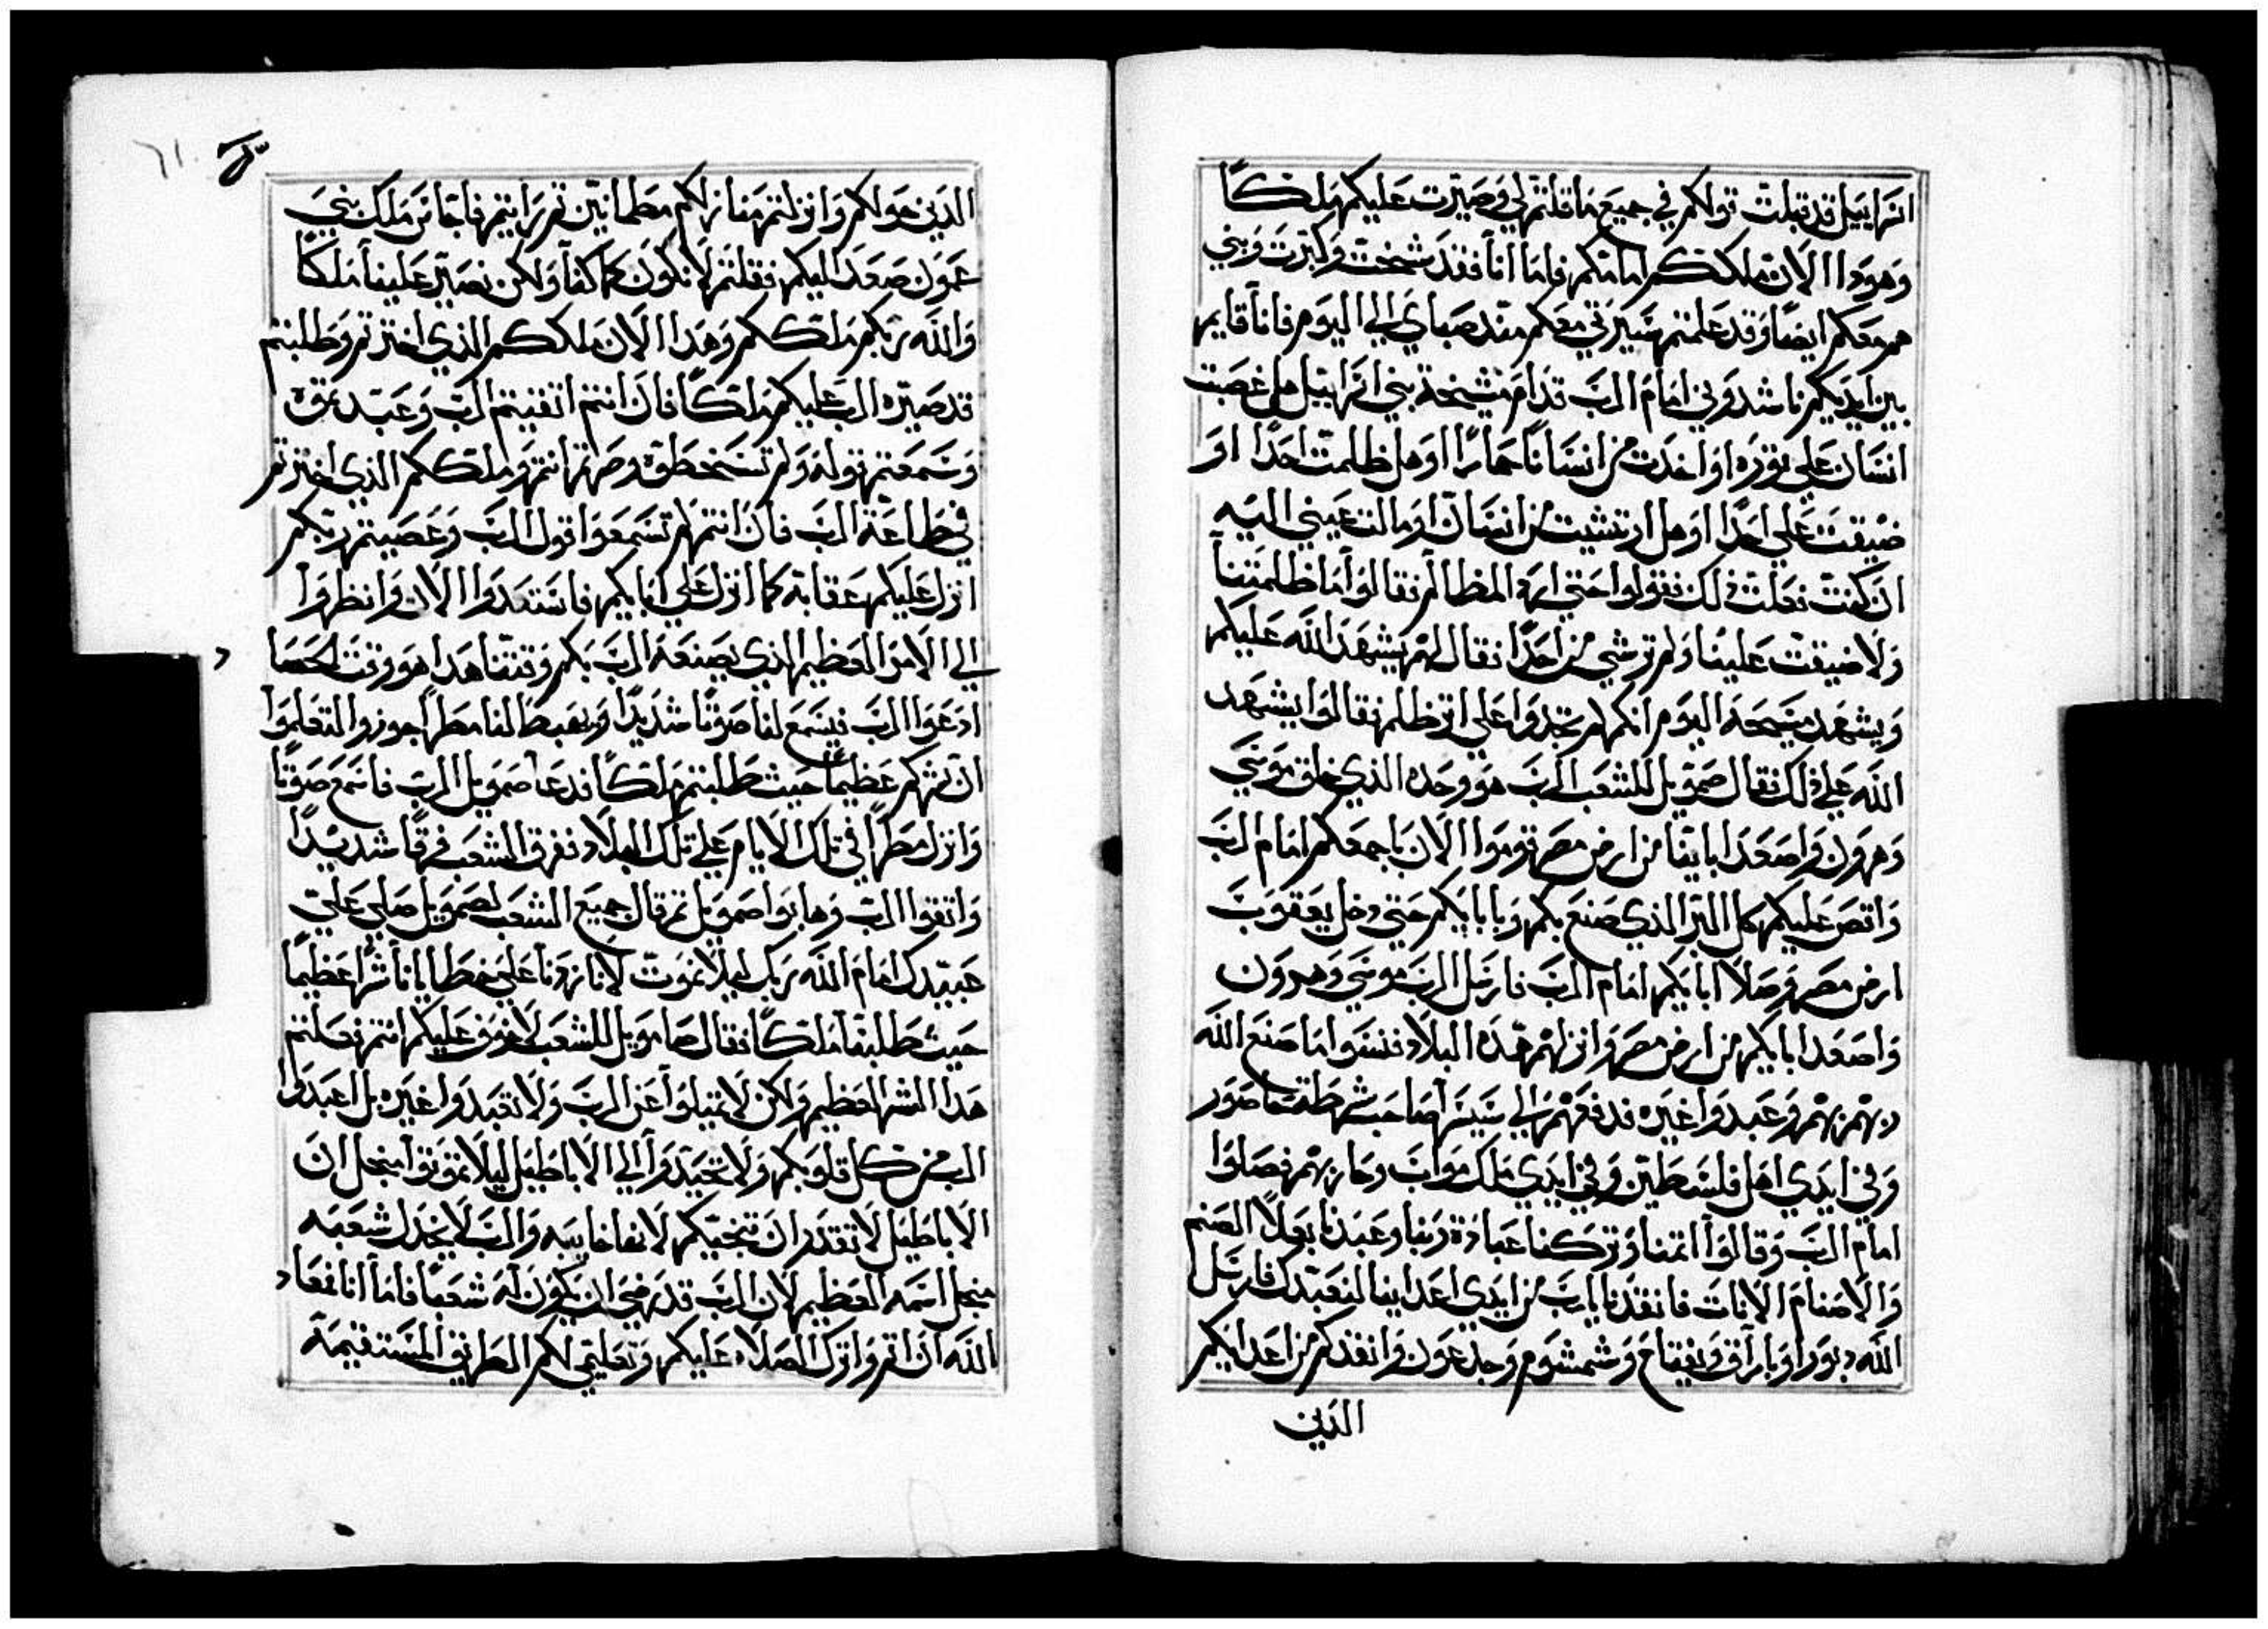 اسراييل قد قبلت قولكم في جميع ما قلتم لي وصيرت عليكم ملكًا
وهودا الان ملككم امامكم فاما انا فقد شخت وكبرت وبني
هم معكم ايضا وقد علمتم سيرتي معكم منذ صباي الي اليوم فانا قايم
بين ايديكم ناشدوني امام الرب قدام مشيخة بني اسراييل هل غصبت
انسان علي ثوره او اخذت من انسانًا حمارًا او هل ظلمت احدًا او
ضيقت علي احدًا او هل ارتشيت من انسان او مالت عيني اليه
ان كنت فعلت ذلك فقولوا حتي ارد المظالم فقالوا ما ظلمتنا
ولا ضيقت علينا ولم ترشي من احدًا فقال لهم يشهد الله عليكم
ويشهد مسيحه اليوم انكم لم تجدوا علي اثر ظلم فقالوا يشهد
الله علي ذلك فقال صمويل للشعب الرب هو وحده الذي خلق موسي
وهرون واصعد اباينا من ارض مصر قوموا الان باجمعكم امام الرب
واقص عليكم كل البر الذي صنع بكم وباباكم حتي دخل يعقوب
ارض مصر وصلا اباكم امام الرب فارسل الرب موسي وهرون
واصعد اباكم من ارض مصر وانزلهم هذه البلاد فنسوا ما صنع الله
ربهم بهم وعبدوا غيره فدفعهم الي سيسرا صاحب شرطة حاصور
وفي ايدي اهل فلسطين وفي ايدي ملك مواب وحاربهم فصلوا
امام الرب وقالوا اثمنا وتركنا عبادة ربنا وعبدنا بعلا الصنم
والاصنام الاناث فانقذنا يا رب من ايدي اعداينا لنعبدك فارسل
الله دبورا وباراق ويفتاح وشمشوم وجدعون وانقذكم من اعدايكم
الذين
الذين حولكم وانزلتم منازلكم مطمانين ثم رايتم ناحاس ملك بني
عمون صعد اليكم فقلتم لا نكون كما كنا ولكن نصير علينا ملكًا
والله ربكم ملككم وهذا الان ملككم الذي اخترتم وطلبتم
قد صيره الرب عليكم ملكًا فان انتم اتقيتم الرب وعبدتموه
وسمعتم قوله ولم تسخطوه وصرتم انتم وملككم الذي اخترتم
في طاعة الرب فان انتم لم تسمعوا قول الرب وعصيتم ربكم
انزل عليكم عقابه كما انزل علي اباكم فاستعدوا الان وانظروا
الي الامر العظيم الذي يصنعه الرب بكم وقتنا هذا هو وقت الحصاد
ادعوا الرب فيسمع لنا صوتًا شديدًا ويهبط لنا مطرا جوزوا لتعلموا
ان شركم عظيمًا حيث طلبتم ملكًا فدعا صمويل الرب فاسمع صوتًا
وانزل مطرًا في تلك الايام علي تلك البلاد ففرق الشعب فرقًا شديدًا
واتقوا الرب وهابوا صمويل ثم قال جميع الشعب لصمويل صلي علي
عبيدك امام الله ربك ليلا نموت لانا زدنا علي خطايانا شرًا عظيمًا
حيث طلبنا ملكًا فقال صامويل للشعب لا خوف عليكم انتم فعلتم
هذا الشر العظيم ولكن لا تميلوا عن الرب ولا تعبدوا غيره بل اعبدوا
الرب من كل قلوبكم ولا تحيدوا الي الاباطيل ليلا تموتوا منجل ان
الاباطيل لا تقدر ان تنجيكم لانها خايبه والرب لا يخذل شعبه
منجل اسمه العظيم لان الرب قد رضي ان يكون له شعبًا فاما انا فمعاد
الله ان اثم واترك الصلاه عليكم وتعليمي لكم الطريق المستقيمه